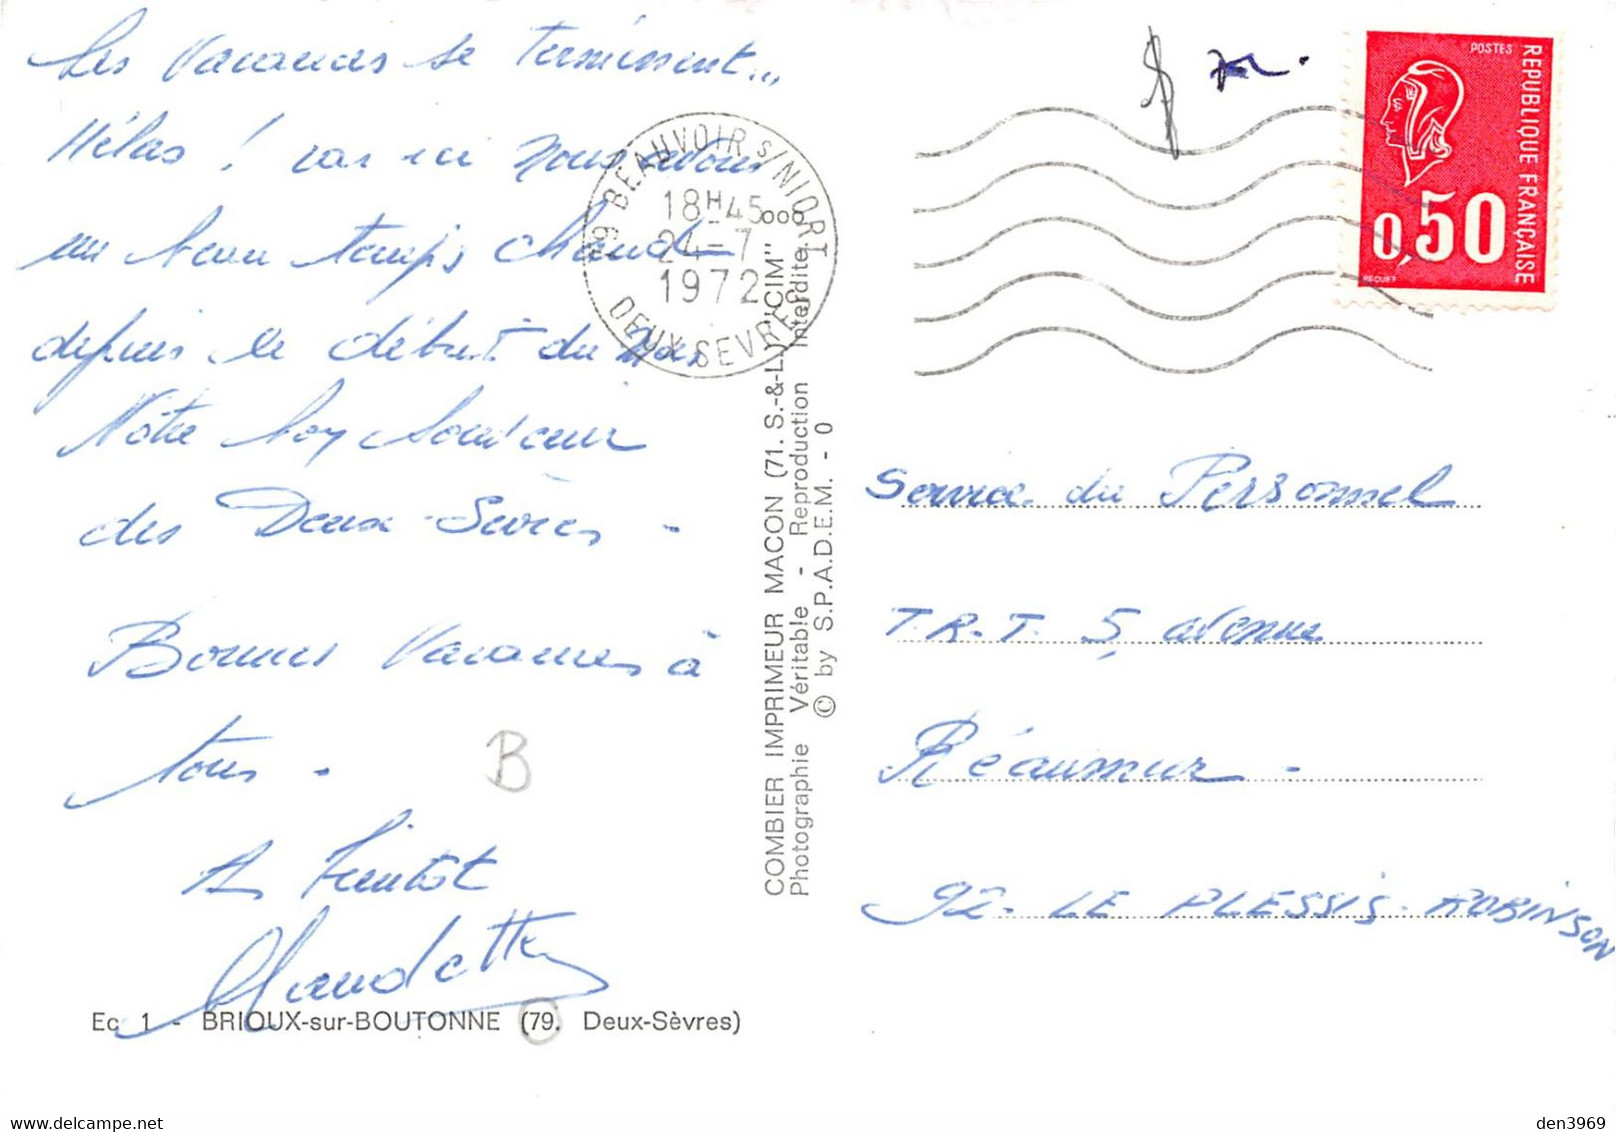 Les Vacances se terminent...
Hélas ! car ici nous avons
un beau temps chaud
depuis le début du mois
Notre bon souvenir
des Deux-Sèvres -
Bonnes Vacances à
tous -
A bientot
Claudette
B
Ec 1 - BRIOUX-sur-BOUTONNE (79. Deux-Sèvres)
79 BEAUVOIR s/NIORT
18H45
24-7
1972
DEUX SEVRES
COMBIER IMPRIMEUR MACON (71. S.-&-L.) "CIM"
Photographie Véritable - Reproduction Interdite
© by S.P.A.D.E.M. - 0
POSTES
REPUBLIQUE FRANÇAISE
0,50
BEQUET
Service du Personnel
T.R.T. 5, avenue
Réaumur -
92- LE PLESSIS-ROBINSON
delcampe.net
den3969